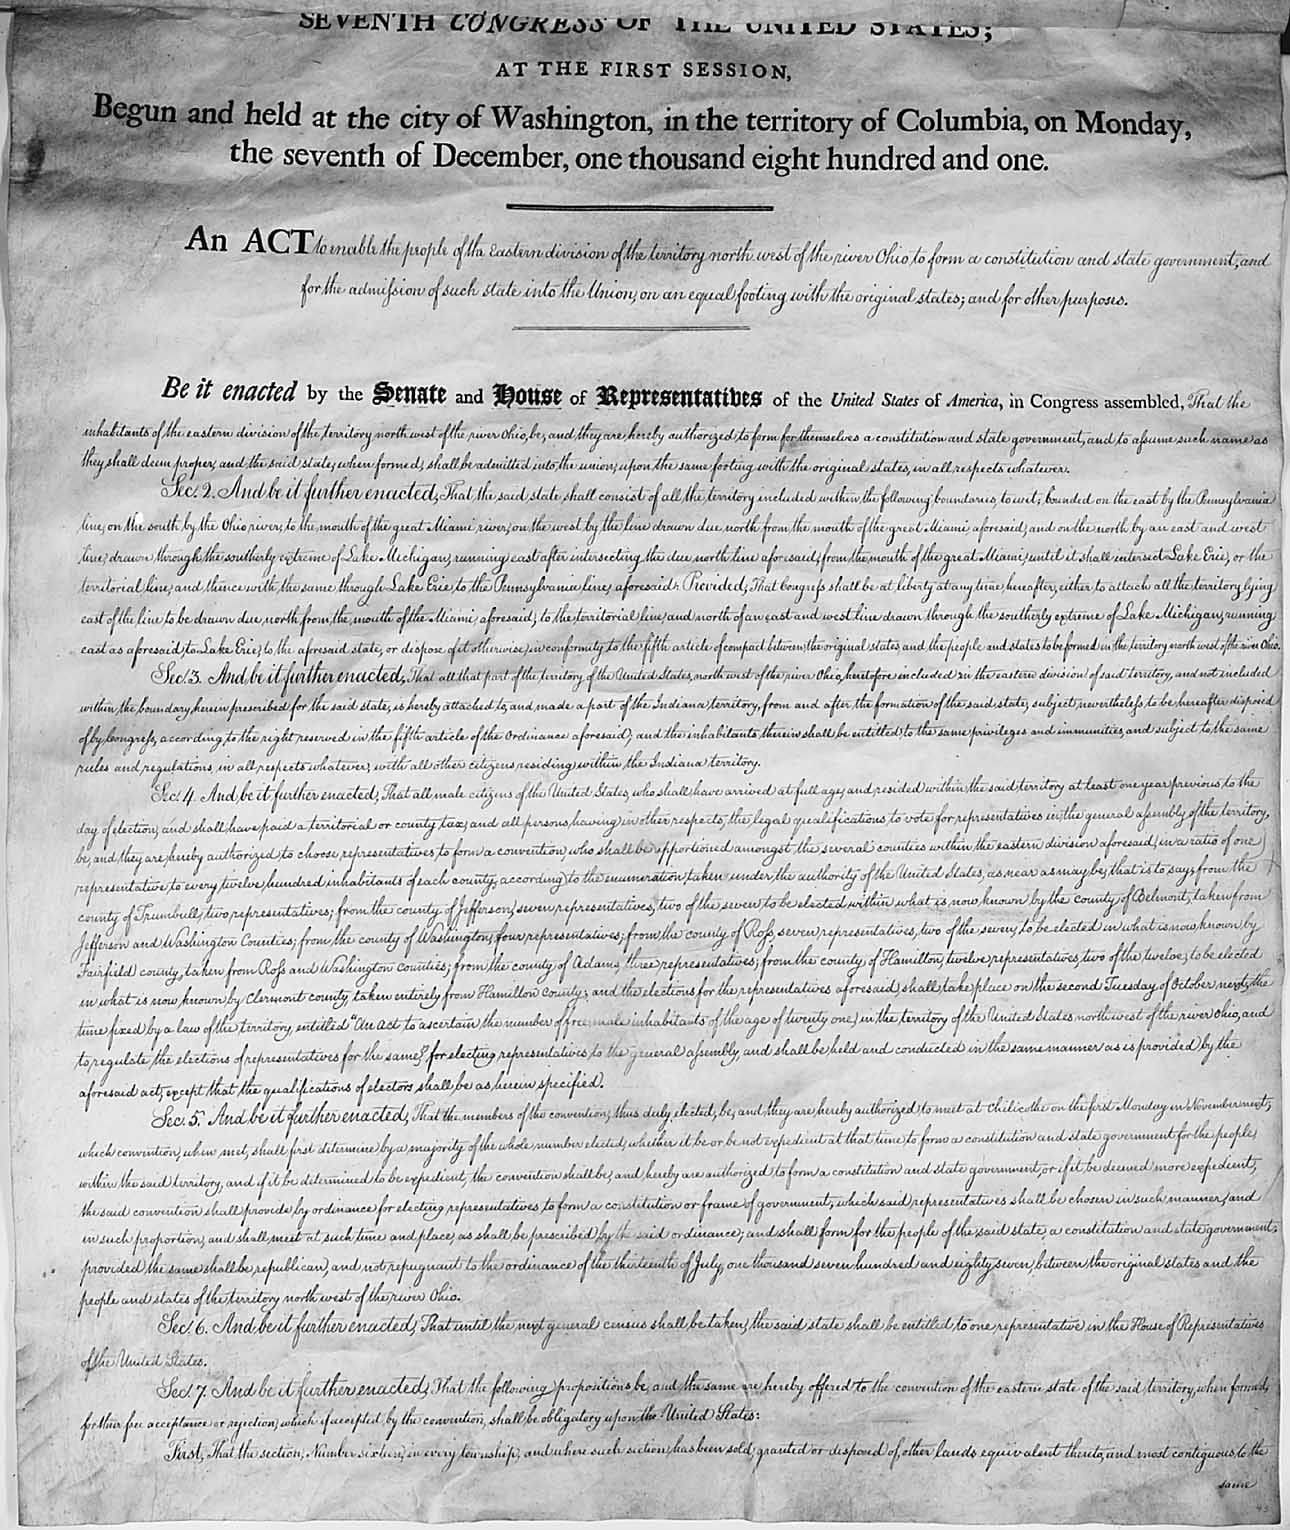 SEVENTH CONGRESS OF THE UNITED STATES;
AT THE FIRST SESSION,
Begun and held at the city of Washington, in the territory of Columbia, on Monday,
the seventh of December, one thousand eight hundred and one.
An ACT to enable the people of the Eastern division of the territory north west of the river Ohio to form a constitution and state government, and
for the admission of such state into the Union, on an equal footing with the original states; and for other purposes.
Be it enacted by the Senate and House of Representatives of the United States of America, in Congress assembled, That the
inhabitants of the eastern division of the territory north west of the river Ohio, be, and they are hereby authorized to form for themselves a constitution and state government, and to assume such name as
they shall deem proper, and the said state, when formed, shall be admitted into the union, upon the same footing with the original states, in all respects whatever.
Sec. 2. And be it further enacted, That the said state shall consist of all the territory included within the following boundaries, to wit; bounded on the east by the Pennsylvania
line, on the south by the Ohio river, to the mouth of the great Miami river, on the west by the line drawn due north from the mouth of the great Miami, aforesaid, and on the north by an east and west
line, drawn through the southerly extreme of Lake Michigan, running east after intersecting the due north line aforesaid, from the mouth of the great Miami, until it shall intersect Lake Erie, or the
territorial line, and thence with the same through Lake Erie, to the Pennsylvania line, aforesaid: Provided, That Congress shall be at liberty at any time hereafter, either to attach all the territory lying
east of the line to be drawn due north from the mouth of the Miami, aforesaid, to the territorial line, and north of an east and west line drawn through the southerly extreme of Lake Michigan, running
east as aforesaid to Lake Erie, to the aforesaid state, or dispose of it otherwise, in conformity to the fifth article of compact between the original states and the people and states to be formed in the territory north west of the river Ohio.
Sec. 3. And be it further enacted, That all that part of the territory of the United States, north west of the river Ohio, heretofore included in the eastern division of said territory, and not included
within the boundary herein prescribed for the said state, is hereby attached to, and made a part of the Indiana territory, from and after the formation of the said state, subject nevertheless to be hereafter disposed
of by Congress, according to the right reserved in the fifth article of the Ordinance aforesaid, and the inhabitants therein shall be entitled to the same privileges and immunities, and subject to the same
rules and regulations, in all respects whatever, with all other citizens residing within the Indiana territory.
Sec. 4. And be it further enacted, That all male citizens of the United States, who shall have arrived at full age, and resided within the said territory at least one year previous to the
day of election, and shall have paid a territorial or county tax, and all persons having in other respects, the legal qualifications to vote for representatives in the general assembly of the territory,
be, and they are hereby authorized to choose representatives to form a convention, who shall be apportioned amongst the several counties within the eastern division aforesaid, in a ratio of one
representative to every twelve hundred inhabitants of each county, according to the enumeration taken under the authority of the United States, as near as may be, that is to say; from the
county of Trumbull, two representatives; from the county of Jefferson, seven representatives, two of the seven to be elected within what is now known by the county of Belmont, taken from
Jefferson and Washington Counties; from the county of Washington, four representatives; from the county of Ross, seven representatives, two of the seven to be elected in what is now known by
Fairfield county, taken from Ross and Washington counties; from the county of Adams, three representatives; from the county of Hamilton, twelve representatives, two of the twelve to be elected
in what is now known by Clermont county, taken entirely from Hamilton county; and the elections for the representatives aforesaid, shall take place on the second Tuesday of October next, the
time fixed by a law of the territory, entitled "An act to ascertain the number of free male inhabitants of the age of twenty one, in the territory of the United States north west of the river Ohio, and
to regulate the elections of representatives for the same," for electing representatives to the general assembly, and shall be held and conducted in the same manner as is provided by the
aforesaid act, except that the qualifications of electors shall be as herein specified.
Sec. 5. And be it further enacted, That the members of the convention, thus duly elected, be, and they are hereby authorized to meet at Chilicothe on the first Monday in November next;
which convention, when met, shall first determine by a majority of the whole number elected, whether it be or be not expedient at that time to form a constitution and state government for the people,
within the said territory, and if it be determined to be expedient, the convention shall be, and hereby are authorized to form a constitution and state government, or if it be deemed more expedient,
the said convention shall provide by ordinance for electing representatives to form a constitution or frame of government; which said representatives shall be chosen in such manner, and
in such proportion, and shall meet at such time and place, as shall be prescribed by the said ordinance; and shall form for the people of the said state, a constitution and state government;
provided the same shall be republican, and not repugnant to the ordinance of the thirteenth of July, one thousand seven hundred and eighty seven, between the original states and the
people and states of the territory north west of the river Ohio.
Sec. 6. And be it further enacted, That until the next general census shall be taken, the said state shall be entitled to one representative in the House of Representatives
of the United States.
Sec. 7. And be it further enacted, That the following propositions be, and the same are hereby offered to the convention of the eastern state of the said territory, when formed,
for their free acceptance or rejection, which if accepted by the convention, shall be obligatory upon the United States:
First, That the section, Number sixteen, in every township, and where such section has been sold, granted or disposed of, other lands equivalent thereto, and most contiguous to the
same
43